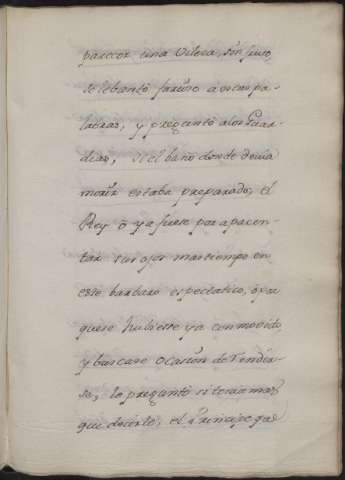 parecer una Vileza, sin susto,
se lebantó furioso a estas pa-
labras, y preguntó a los Guar-
dias, si el baño donde devia
morir estaba preparado; el
Rey ò ya fuese por apacen-
tar sus ojos mas tiempo en
este barbaro espectatico, o por
que se hubiesse ya conmovido,
y buscase ocasion de rendir-
se, le preguntó si tenia mas
que decirle; el Principe que